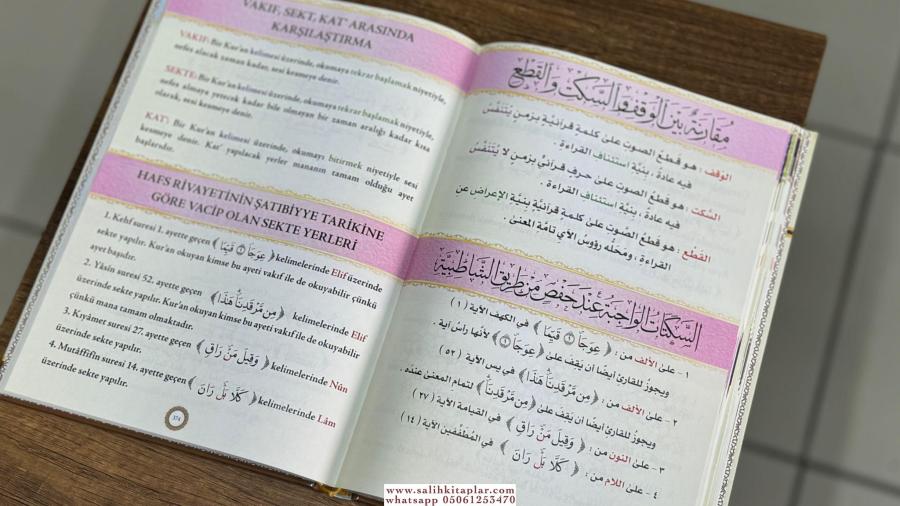 VAKIF, SEKT, KAT' ARASINDA
KARŞILAŞTIRMA
VAKIF: Bir Kur'an kelimesi üzerinde, okumaya tekrar başlamak niyetiyle,
nefes alacak zaman kadar, sesi kesmeye denir.
SEKTE: Bir Kur'an kelimesi üzerinde, okumaya tekrar başlamak niyetiyle,
nefes almaya yetecek kadar bile olmayan bir zaman aralığı kadar kısa
olarak, sesi kesmeye denir.
KAT': Bir Kur'an kelimesi üzerinde, okumayı bitirmek niyetiyle sesi
kesmeye denir. Kat' yapılacak yerler mananın tamam olduğu ayet
başlarıdır.
HAFS RİVAYETİNİN ŞATIBİYYE TARİKİNE
GÖRE VACİP OLAN SEKTE YERLERİ
1. Kehf suresi 1. ayette geçen ﴿ عِوَجَاۜ ① قَيِّمًا ﴾ kelimelerinde Elif üzerinde
sekte yapılır. Kur'an okuyan kimse bu ayeti vakıf ile de okuyabilir çünkü
ayet başıdır.
2. Yâsîn suresi 52. ayette geçen ﴿ مِن مَّرْقَدِنَاۜ هَٰذَا ﴾ kelimelerinde Elif
üzerinde sekte yapılır. Kur'an okuyan kimse bu ayeti vakıf ile de okuyabilir
çünkü mana tamam olmaktadır.
3. Kıyâmet suresi 27. ayette geçen ﴿ وَقِيلَ مَنْۜ رَاقٍ ﴾ kelimelerinde Nûn
üzerinde sekte yapılır.
4. Mutaffifîn suresi 14. ayette geçen ﴿ كَلَّا بَلْۜ رَانَ ﴾ kelimelerinde Lâm
üzerinde sekte yapılır.
374
مُقَارَنَةٌ بَيْنَ الْوَقْفِ وَالسَّكْتِ وَالْقَطْعِ
الوَقف : هو قطعُ الصوتِ على كلمة قرآنيَّةٍ بزمنٍ يُتَنَفَّسُ
فيه عادةً ، بنِيَّة استئنافِ القراءة .
السَّكت : هو قطعُ الصوتِ على حرفٍ قرآنيٍّ بزمنٍ لا يُتَنَفَّسُ
فيه عادةً ، بنِيَّة استئنافِ القراءة .
القَطْع : هو قطعُ الصَّوت على كلمة قرآنيَّةٍ بنِيَّة الإعراض عن
القراءة ، ومَحَلُّه رؤوسُ الآيِ تامَّة المعنى .
السَّكَتَاتُ الْوَاجِبَةُ عِنْدَ حَفْصٍ مِنْ طَرِيقِ الشَّاطِبِيَّةِ
١ - على الألف من : ﴿ عِوَجَاۜ ① قَيِّمًا ﴾ في الكهف الآية (١)
ويجوزُ للقارئ أيضًا أن يقفَ على ﴿ عِوَجَاۜ ① ﴾ لأنها رأسُ آية .
٢ - على الألف من : ﴿ مِن مَّرْقَدِنَاۜ هَٰذَا ﴾ في يس الآية (٥٢)
ويجوزُ للقارئ أيضًا أن يَقِفَ على ﴿ مِن مَّرْقَدِنَاۜ ﴾ لتمام المعنى عنده .
٣ - على النون من : ﴿ وَقِيلَ مَنْۜ رَاقٍ ﴾ في القيامة الآية (٢٧)
٤ - على اللام من : ﴿ كَلَّا بَلْۜ رَانَ ﴾ في المُطَفِّفين الآية (١٤)
www.salihkitaplar.com
whatsapp 05061253470